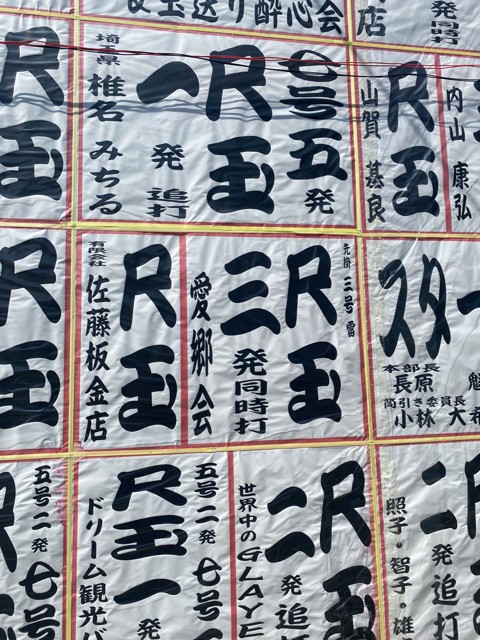 玉送り酔心会
店
発同時打
尺玉
七号五発
尺玉
一発追打
埼玉県
椎名みちる
内山康弘
尺玉
山賀基良
尺玉
先掛三号雷
尺玉
三発同時打
愛郷会
尺玉
有限会社
佐藤板金店
スター
本部長
長原
筒引き委員長
小林大
魁
尺玉
二発追打
世界中のGLAYE
五号二発七号
尺玉一発
ドリーム観光バ
五号二発七号
尺
二発追打
照子・智子・雄